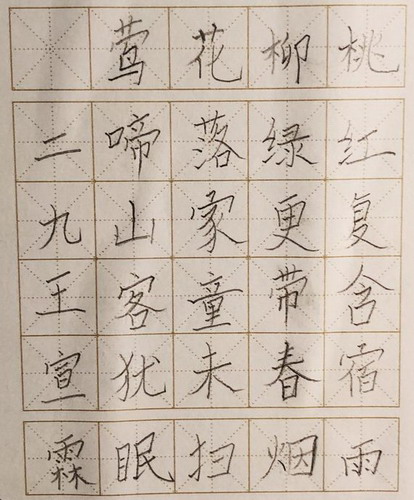 桃红复含宿雨
柳绿更带春烟
花落家童未扫
莺啼山客犹眠
二九王宣霖